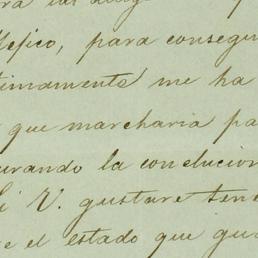 Méjico, para consegui
timamente me ha
que marcharia pa
urando la conclucion
Si V. gustare tene
e el estado que gu